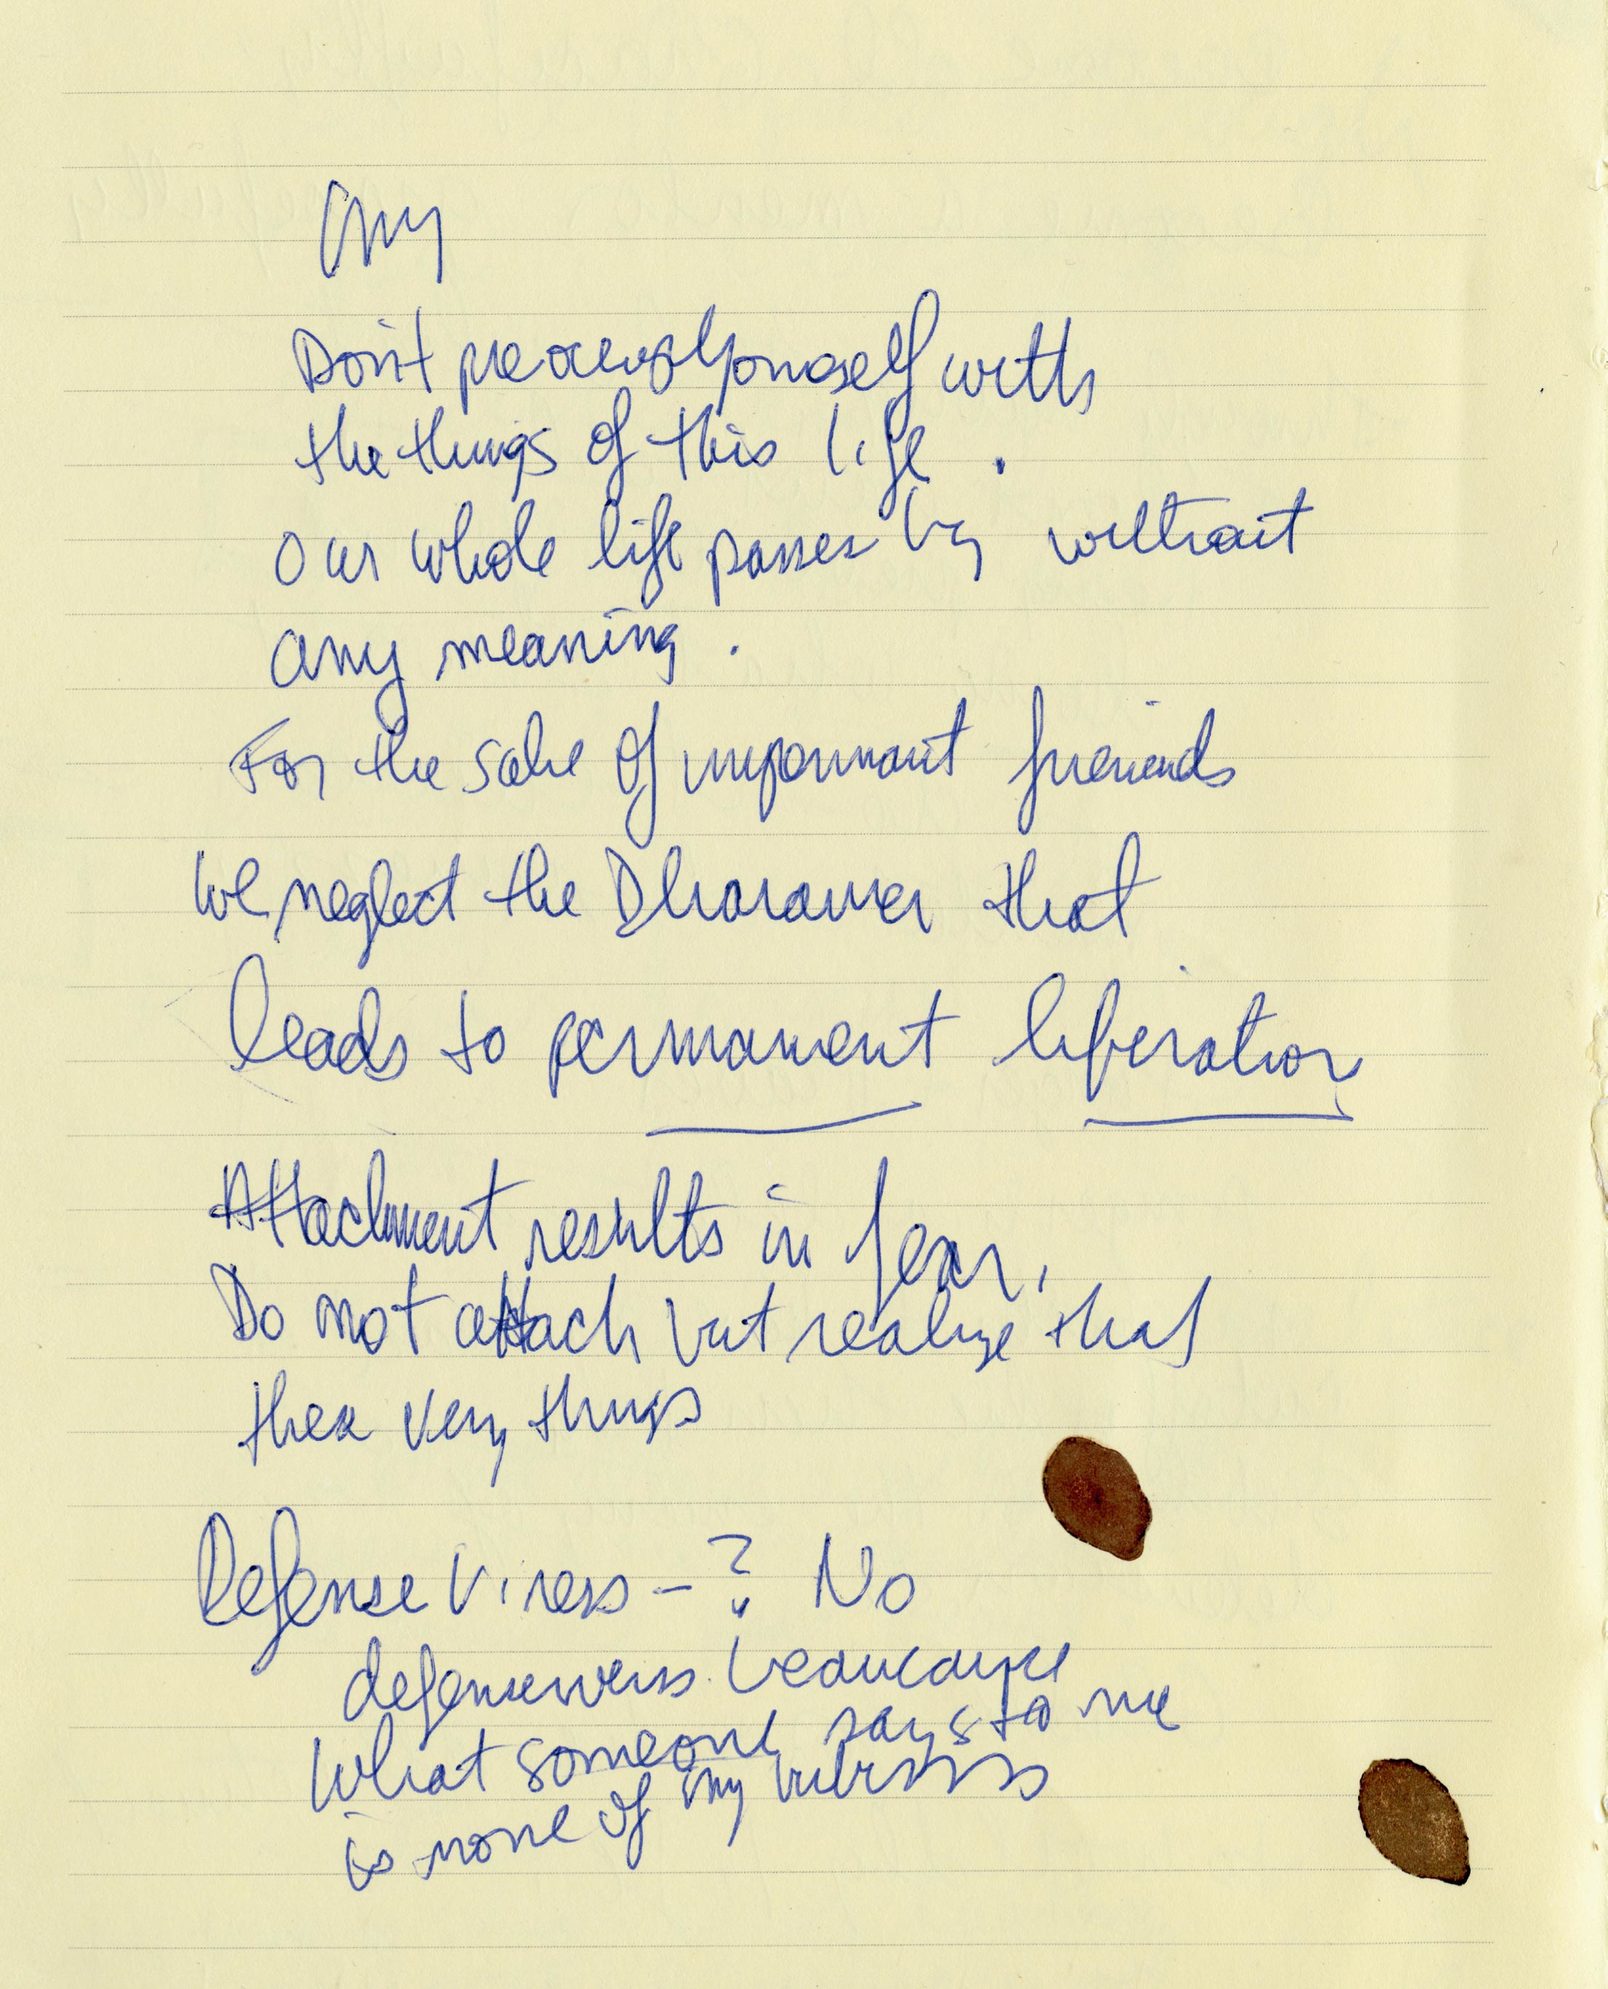 Any
Don't preocupy yourself with
the things of this life .
Our whole life passes by without
any meaning .
For the sake of friends
we neglect the that
leads to permanent liberation
Attachment results in fear,
Do not attach but realize that
these very things
Defenseviness - ? No
what someone says to me
is none of my